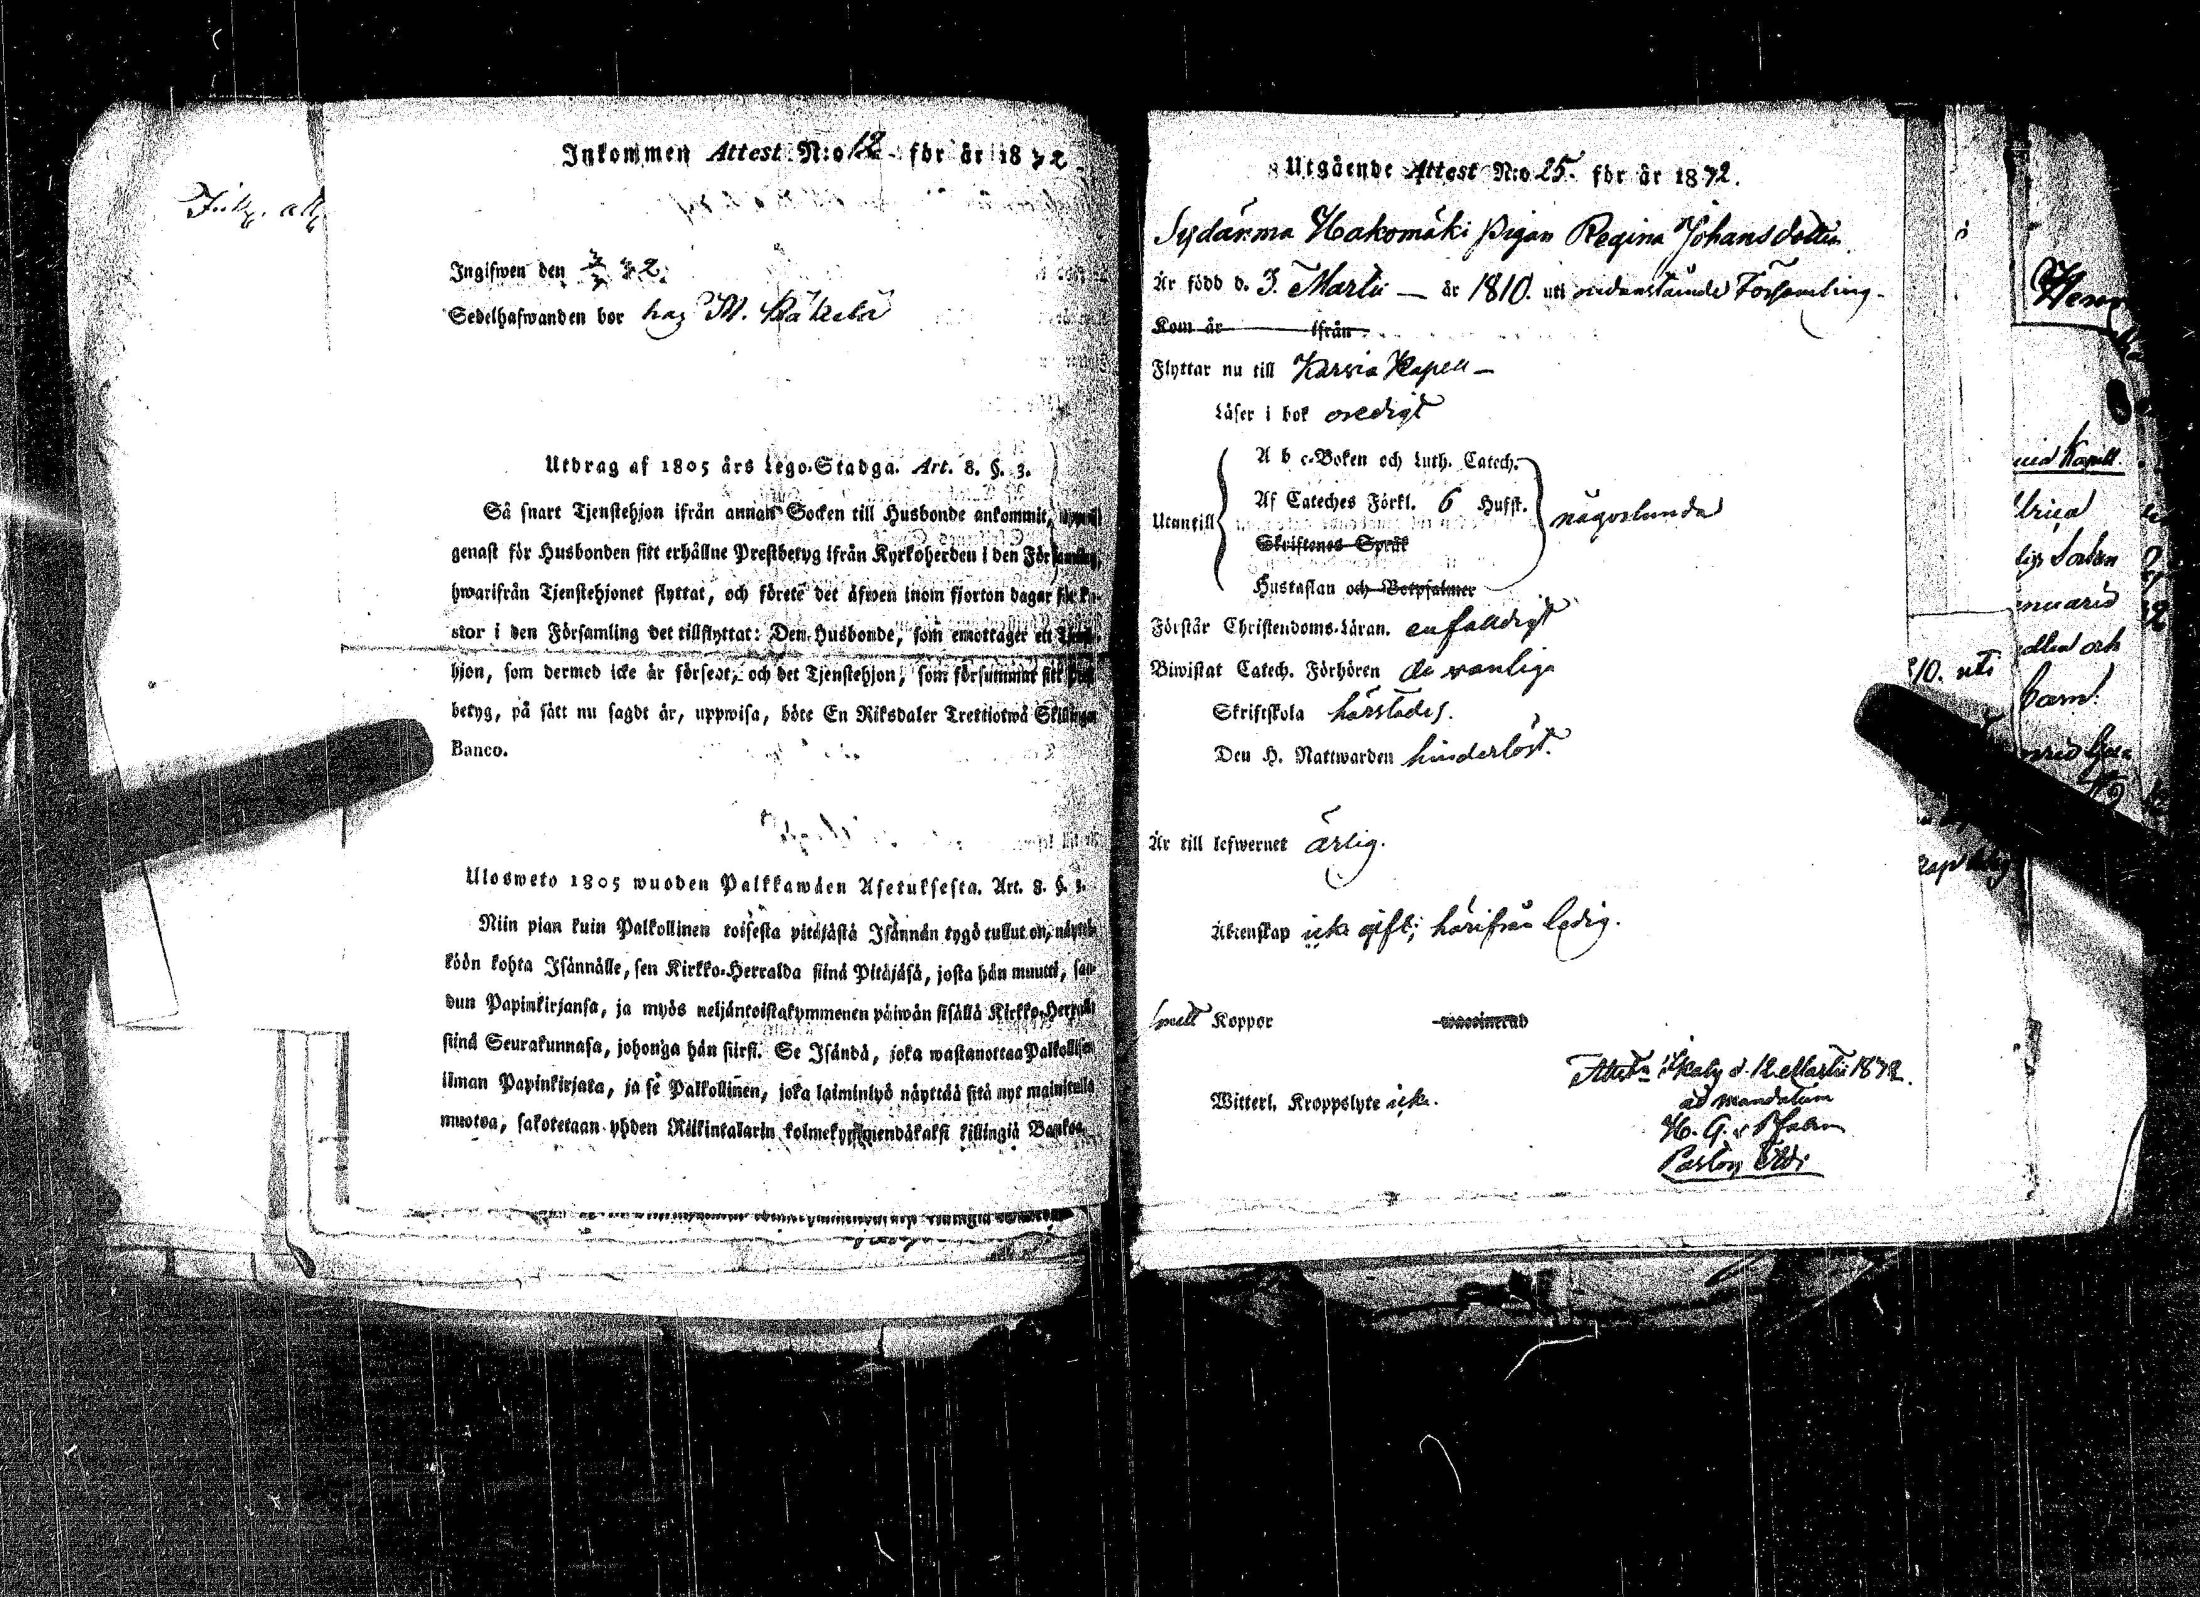 Inkommen Attest N:o 12 för år 1872
Ingifwen den 72.
Sedelhafwanden bor hos M.
Utdrag af 1805 års Lego-Stadga. Art. 8. §. 3.
Så snart Tjenstehjon ifrån annan Socken till Husbonde ankommit,
genast för Husbonden sitt erhållne Prestbetyg ifrån Kyrkoherden i den Församling,
hwarifrån Tjenstehjonet flyttat, och förete det äfwen inom fjorton dagar för Pa-
stor i den Församling det tillflyttat: Den Husbonde, som emottager ett Tjenste-
hjon, som dermed icke är försedt, och det Tjenstehjon, som försummat sitt
betyg, på sätt nu sagdt är, uppwisa, böte En Riksdaler Trettiotwå Skillingar
Banco.
Ulosweto 1805 wuoden Palkkawäen Asetuksesta. Art. 8. §. 3.
Niin pian kuin Palkollinen toisesta pitäjästä Isännän tygö tullut on, näyttä-
köön kohta Isännälle, sen Kirkko-Herralda siinä Pitäjäsä, josta hän muutti, saa-
dun Papinkirjansa, ja myös neljäntoistakymmenen päiwän sisällä Kirkko-Herralle
siinä Seurakunnasa, johonga hän siirsi. Se Isändä, joka wastanottaa Palkollisen
ilman Papinkirjata, ja se Palkollinen, joka laiminlyö näyttää sitä nyt mainitulla
muotoa, sakotetaan yhden Riikintalarin kolmekymmendäkaksi killingiä Bankoa.
Utgående Attest N:o 25. för år 1872.
Sydänma Hakomäki Pigan Regina Johansdotter
Är född d. 3. Martii — år 1810. uti nedanstående Församling.
Kom år ifrån
Flyttar nu till Karvia Kapell —
Läser i bok oredigt
A b c-Boken och Luth. Catech.
Utantill Af Cateches Förkl. 6 Hufst. någorlunda
Skriftenes Språk
Hustaflan och Botpsalmer
Förstår Christendoms-Läran. enfaldigt
Biwistat Catech. Förhören de vanliga
Skriftskola härstädes.
Den H. Nattwarden hinderlöst.
Är till lefwernet ärlig.
Äktenskap icke gift; härifrån ledig.
haft Koppor vaccinerad
Attest. Ikaly d. 12 Martii 1872.
Witterl. Kroppslyte icke.
ad mandatum
H. G.